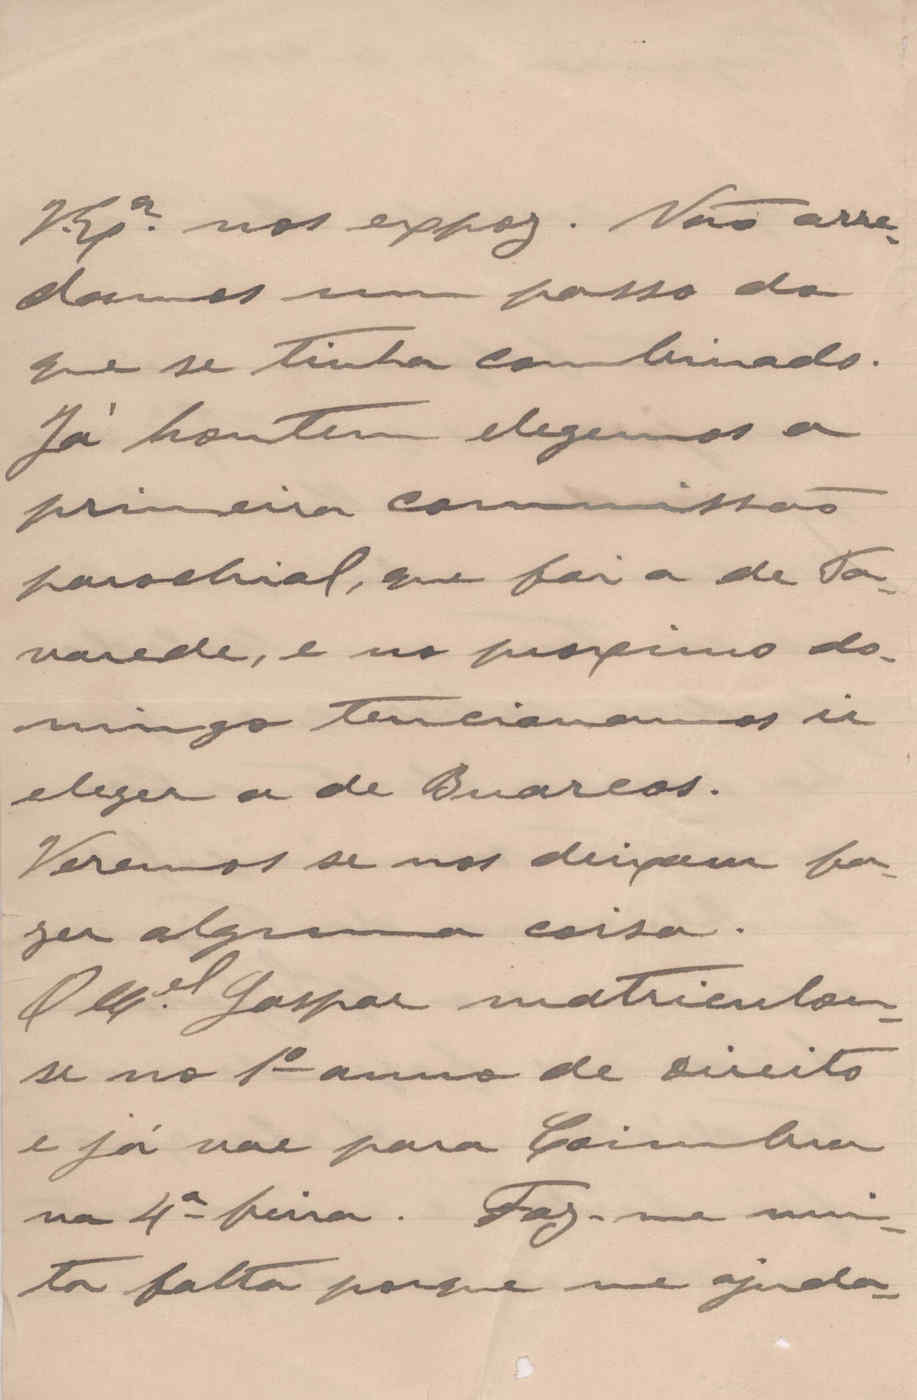 V. Ex.ª nos expoz. Não arre-
damos um passo do
que se tinha combinado.
Já hontem elegemos a
primeira commissão
parochial, que foi a de Ta-
varede, e no proximo do-
mingo tencionamos ir
eleger a de Buarcos.
Veremos se nos deixam fa-
zer alguma coisa.
O M.el Gaspar matriculou-
se no 1º anno de direito
e já vae para Coimbra
na 4ª feira. Faz-me mui-
ta falta porque me ajuda-